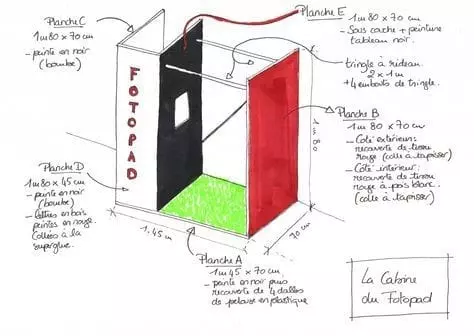 Planche C
1m80 x 70cm
- peinte en noir
(bombe)
Planche E
1m80 x 70 cm
- Sous couche + peinture
tableau noir.
tringle à rideau
2 x 1m
+ 4 embouts de tringle.
Planche B
1m80 x 70cm
- Coté extérieur:
recouverte de tissu
rouge (colle à tapisser)
- Côté intérieur:
recouverte de tissu
rouge à pois blanc.
(colle à tapisser)
FOTOPAD
1m80
Planche D
1m80 x 45 cm
- peinte en noir
(bombe)
- lettres en bois
peintes en rouge.
Collées à la
superglue.
1.45 cm
70 cm
Planche A
1m45 x 70cm
- peinte en noir puis
recouverte de 4 dalles
de pelouse en plastique
La Cabine
du Fotopad